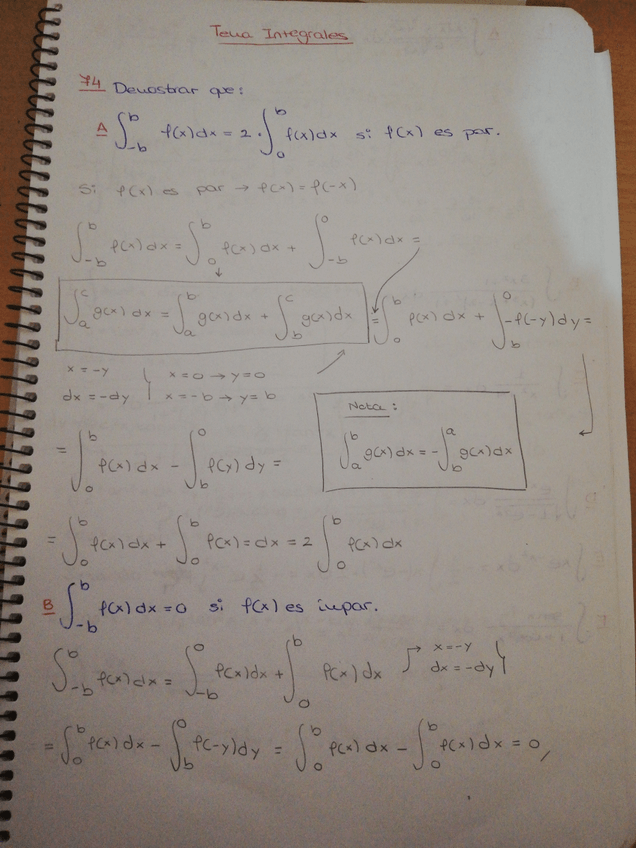 Tema Integrales
74 Demostrar que:
A ∫_{-b}^{b} f(x)dx = 2 · ∫_{0}^{b} f(x)dx si f(x) es par.
Si f(x) es par → f(x) = f(-x)
∫_{-b}^{b} f(x) dx = ∫_{0}^{b} f(x) dx + ∫_{-b}^{0} f(x) dx =
∫_{a}^{c} g(x) dx = ∫_{a}^{b} g(x) dx + ∫_{b}^{c} g(x) dx
= ∫_{0}^{b} f(x) dx + ∫_{b}^{0} -f(-y) dy =
x = -y | x = 0 → y = 0
dx = -dy | x = -b → y = b
Nota:
∫_{a}^{b} g(x) dx = - ∫_{b}^{a} g(x) dx
= ∫_{0}^{b} f(x) dx - ∫_{b}^{0} f(y) dy =
= ∫_{0}^{b} f(x) dx + ∫_{0}^{b} f(x) = dx = 2 ∫_{0}^{b} f(x) dx
B ∫_{-b}^{b} f(x) dx = 0 si f(x) es impar.
∫_{-b}^{b} f(x) dx = ∫_{-b}^{0} f(x) dx + ∫_{0}^{b} f(x) dx → x = -y
dx = -dy
= ∫_{0}^{b} f(x) dx - ∫_{b}^{0} f(-y) dy = ∫_{0}^{b} f(x) dx - ∫_{0}^{b} f(x) dx = 0,